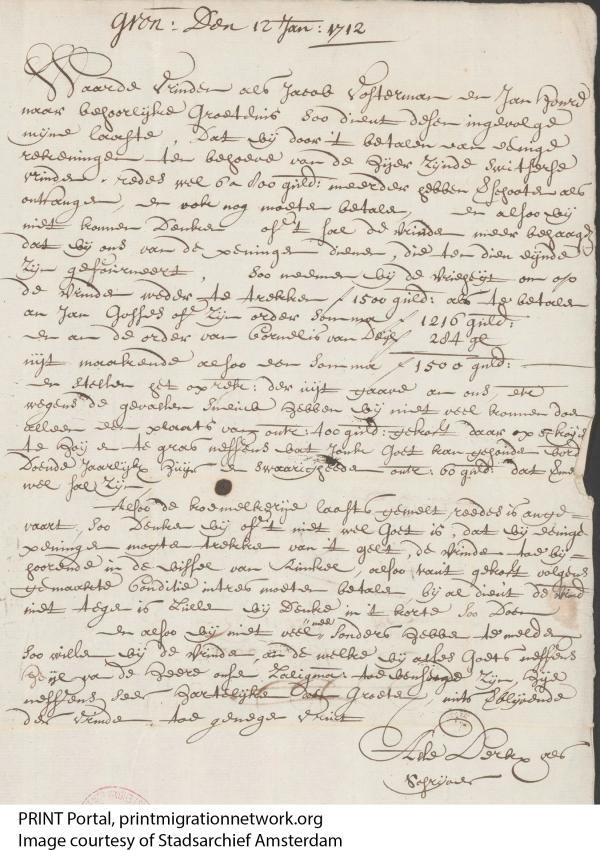 Gron: Den 12 Jan: 1712
Waarde Vrinden als Jacob Vosterman en Jan
naar behoorlijke Groetenis soo dient desen ingevolge
mijne laaste, Dat wij door 't betalen van eenige
rekeningen ten behoeve van de hijer zijnde switserse
vrinden, redes wel 6 a 800 guld: meerder hebben Schooten als
ontfangen, en ook nog moeten betale, en alsoo wij
niet konnen Denken oft sal de Vrinde meer behaag
dat wij ons van de peningen dienen, die ten dien eijnde
Zijn gefourneert, Soo neemen wij de Vrijheijt om op
de Vrinden weder te trekken f 1500 guld: als te betalen
an Jan Gosses of Zijn order Somma f 1216 guld:
en an de order van Cornelis van 284 gl
uijt maakende alsoo een Somma f 1500 guld:
en stellen het op rek: der an ons, etc
wegens de Hebben wij niet veel konnen doen
alleen een plaats van ontr: 400 guld: gekoft daar op
te Hoij en te gras neffens wat Jonk Goet kan gehouden word
Doende Jaarlijkx Huijr en swaarigheeden ontr: 60 guld: dat
wel sal Zijn
Alsoo de koemelkerije laasts gemelt, reedes is ange-
vaart, Soo Denken wij oft niet wel Goet is, dat wij eenige
peningen mogte trekke van 't gelt, de Vrinde toe be-
hoorende in de wissel van Runkel, alsoo van't gekoft volgens
gemaakte Conditie intres moeten betale, wij al dient de Vrind
niet tege is Zulle wij Denke in't korte Soo Doen
en alsoo wij niet veel mee sonders hebbe te melden
Soo wille wij de Vrinde, an de welke wij alles Goets neffens
Heijl van de Heere onse Zaligma: toe wensche Zijn, Hije
neffens Seer Hartelijke Groete, mits Blijvende
der Vrinde toe genege Vrint
Alle Derkx als
Schrijver
PRINT Portal, printmigrationnetwork.org
Image courtesy of Stadsarchief Amsterdam